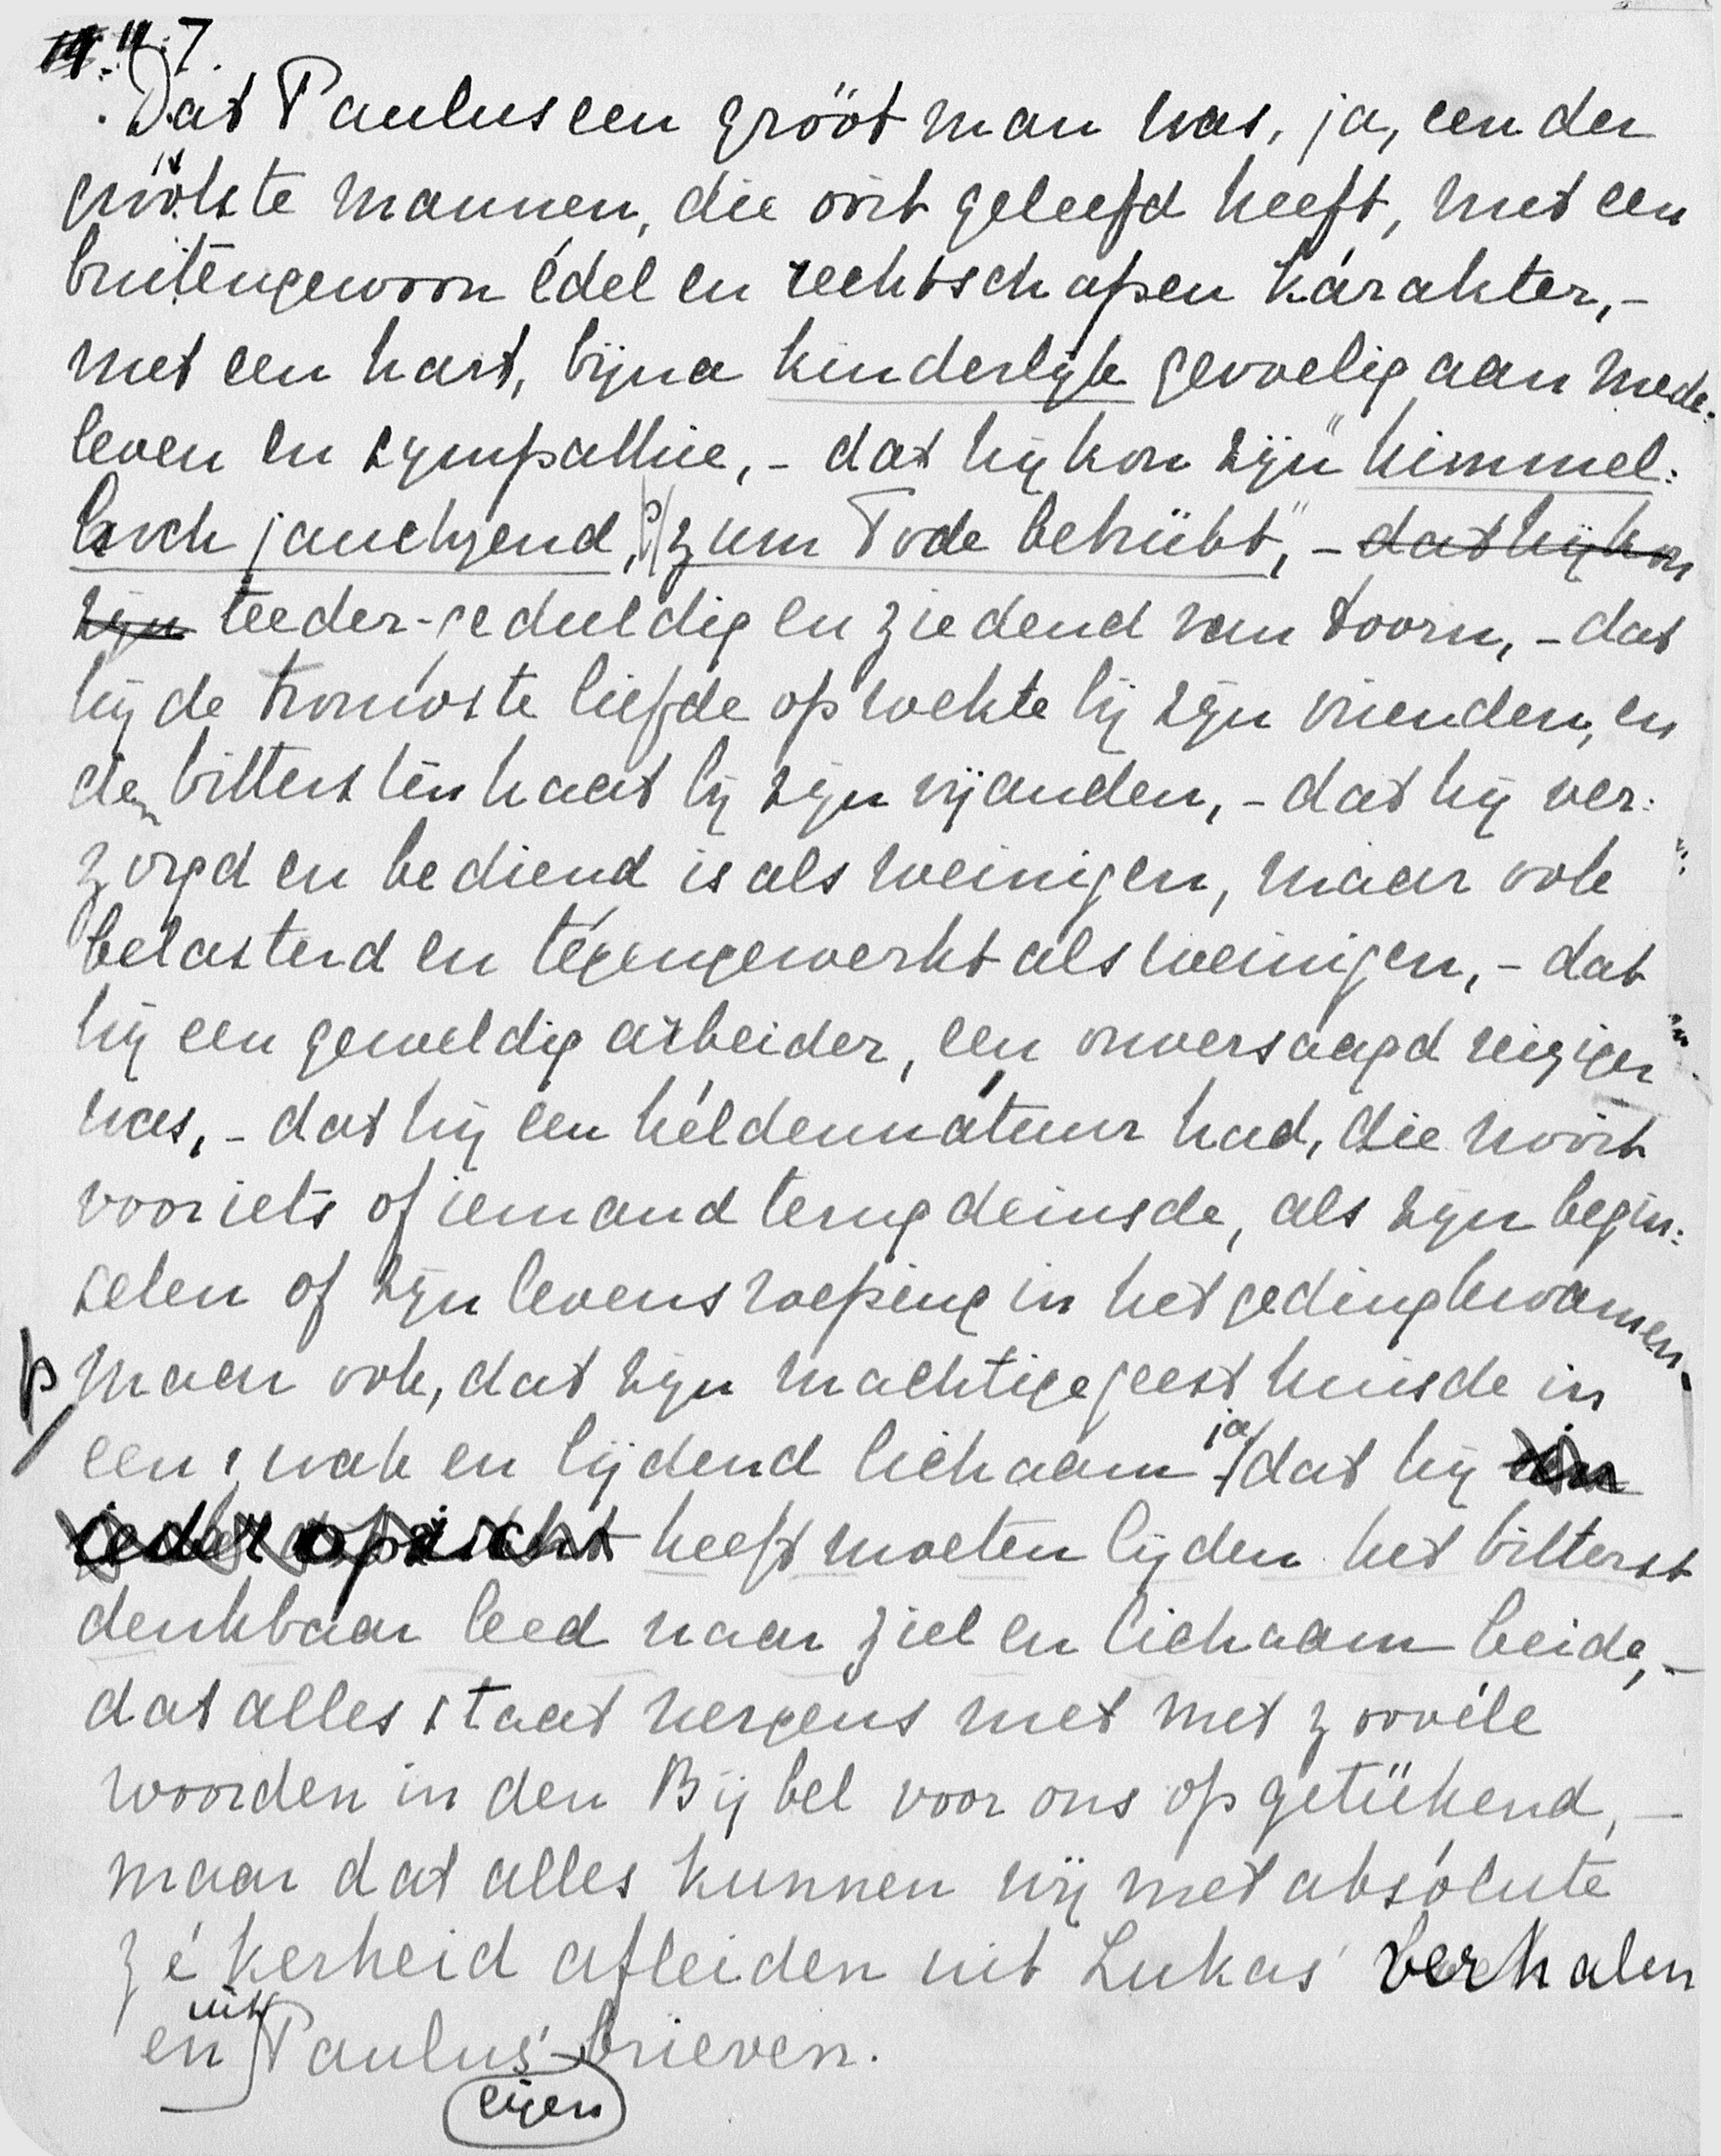 7.
Dat Paulus een gróót man was, ja, een der
grootste mannen, die óóit geleefd heeft, met een
buitengewoon édel en rechtschapen kárakter, -
met een hart, bijna kinderlijk gevoelig aan mede-
leven en sympathie, - dat hij kon zijn "himmel-
hoch jauchzend, zum Tode betrübt", - dat hij kon
zijn teeder-geduldig en ziedend van toorn, - dat
hij de trouwste liefde opwekte bij zijn vrienden, en
den bittersten haat bij zijn vijanden, - dat hij ver-
zorgd en bediend is als weinigen, maar ook
belasterd en tégengewerkt als weinigen, - dat
hij een geweldig arbeider, een onversaagd reiziger
was, - dat hij een héldennátuur had, die nóóit
voor iets of iemand terugdeinsde, als zijn begin-
selen of zijn levensroeping in het geding kwamen.
p Maar ook, dat zijn machtige geest huisde in
een zwak en lijdend lichaam, ja dat hij in
ieder opzicht heeft moeten lijden het bitterst
denkbaar leed naar ziel en lichaam beide, -
dat alles staat nergens met met zoovéle
woorden in den Bijbel voor ons opgetéékend, -
maar dat alles kunnen wij met absólute
zékerheid afleiden uit Lukas' verhalen
en uit Paulus' eigen brieven.